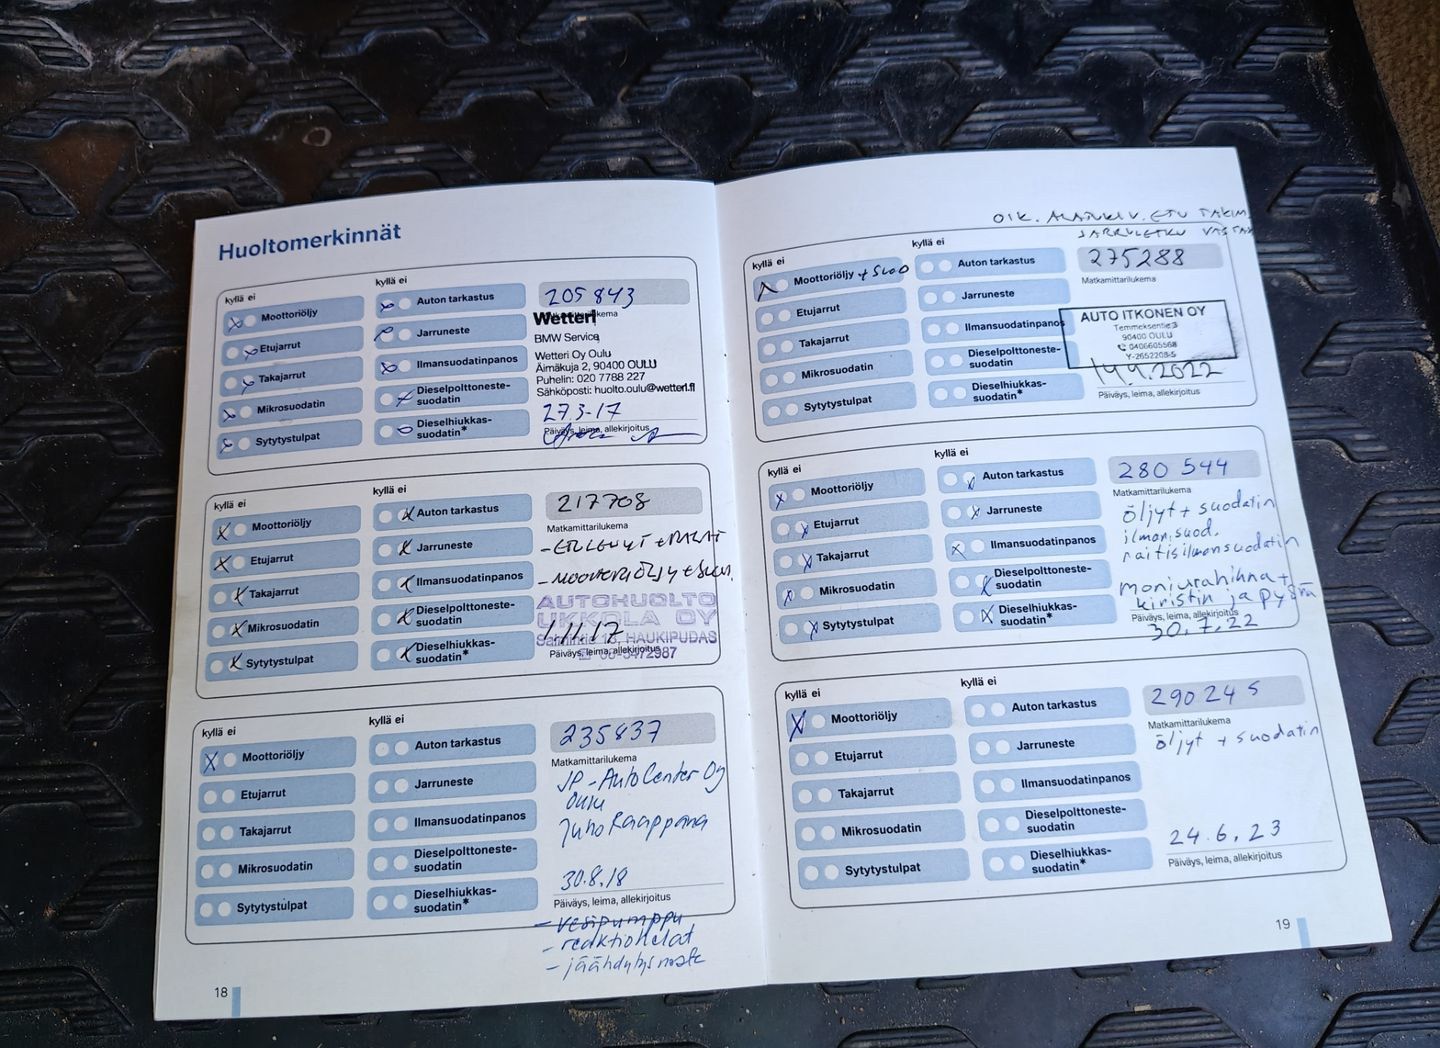 Huoltomerkinnät
kyllä ei
kyllä ei
Moottoriöljy
Auton tarkastus
205 843
Etujarrut
Jarruneste
Takajarrut
Ilmansuodatinpanos
Mikrosuodatin
Dieselpolttoneste-
suodatin
Sytytystulpat
Dieselhiukkas-
suodatin*
Wetteri
BMW Service
Wetteri Oy Oulu
Äimäkuja 2, 90400 OULU
Puhelin: 020 7788 227
Sähköposti: huolto.oulu@wetteri.fi
27.3-17
Päiväys, leima, allekirjoitus
kyllä ei
kyllä ei
Moottoriöljy
Auton tarkastus
217708
Matkamittarilukema
Etujarrut
Jarruneste
Takajarrut
Ilmansuodatinpanos
Mikrosuodatin
Dieselpolttoneste-
suodatin
Sytytystulpat
Dieselhiukkas-
suodatin*
- MOOTTORIÖLJY + SUOD.
AUTOHUOLTO
UKKOLA OY
HAUKIPUDAS
1.11.17
Päiväys, leima, allekirjoitus
kyllä ei
kyllä ei
Moottoriöljy
Auton tarkastus
235837
Matkamittarilukema
Etujarrut
Jarruneste
Takajarrut
Ilmansuodatinpanos
Mikrosuodatin
Dieselpolttoneste-
suodatin
Sytytystulpat
Dieselhiukkas-
suodatin*
JP-AutoCenter Oy
Oulu
Juho Raappana
30.8.18
Päiväys, leima, allekirjoitus
- vesipumppu
- jäähdytysneste
18
OIK. ALATUKIV. ETU TAKIM
JARRULETKU
kyllä ei
kyllä ei
Moottoriöljy + SUOD
Auton tarkastus
275288
Matkamittarilukema
Etujarrut
Jarruneste
Takajarrut
Ilmansuodatinpanos
Mikrosuodatin
Dieselpolttoneste-
suodatin
Sytytystulpat
Dieselhiukkas-
suodatin*
AUTO ITKONEN OY
Temmeksentie 3
90400 OULU
0406605568
Y-2652208-5
14.4.2022
Päiväys, leima, allekirjoitus
kyllä ei
kyllä ei
Moottoriöljy
Auton tarkastus
280 544
Matkamittarilukema
Etujarrut
Jarruneste
Takajarrut
Ilmansuodatinpanos
Mikrosuodatin
Dieselpolttoneste-
suodatin
Sytytystulpat
Dieselhiukkas-
suodatin*
öljyt + suodatin
ilman.suod.
raitisilmansuodatin
moniurahihna +
kiristin ja pyörä
Päiväys, leima, allekirjoitus
30.7.22
kyllä ei
kyllä ei
Moottoriöljy
Auton tarkastus
290245
Matkamittarilukema
Etujarrut
Jarruneste
Takajarrut
Ilmansuodatinpanos
Mikrosuodatin
Dieselpolttoneste-
suodatin
Sytytystulpat
Dieselhiukkas-
suodatin*
öljyt + suodatin
24.6.23
Päiväys, leima, allekirjoitus
19